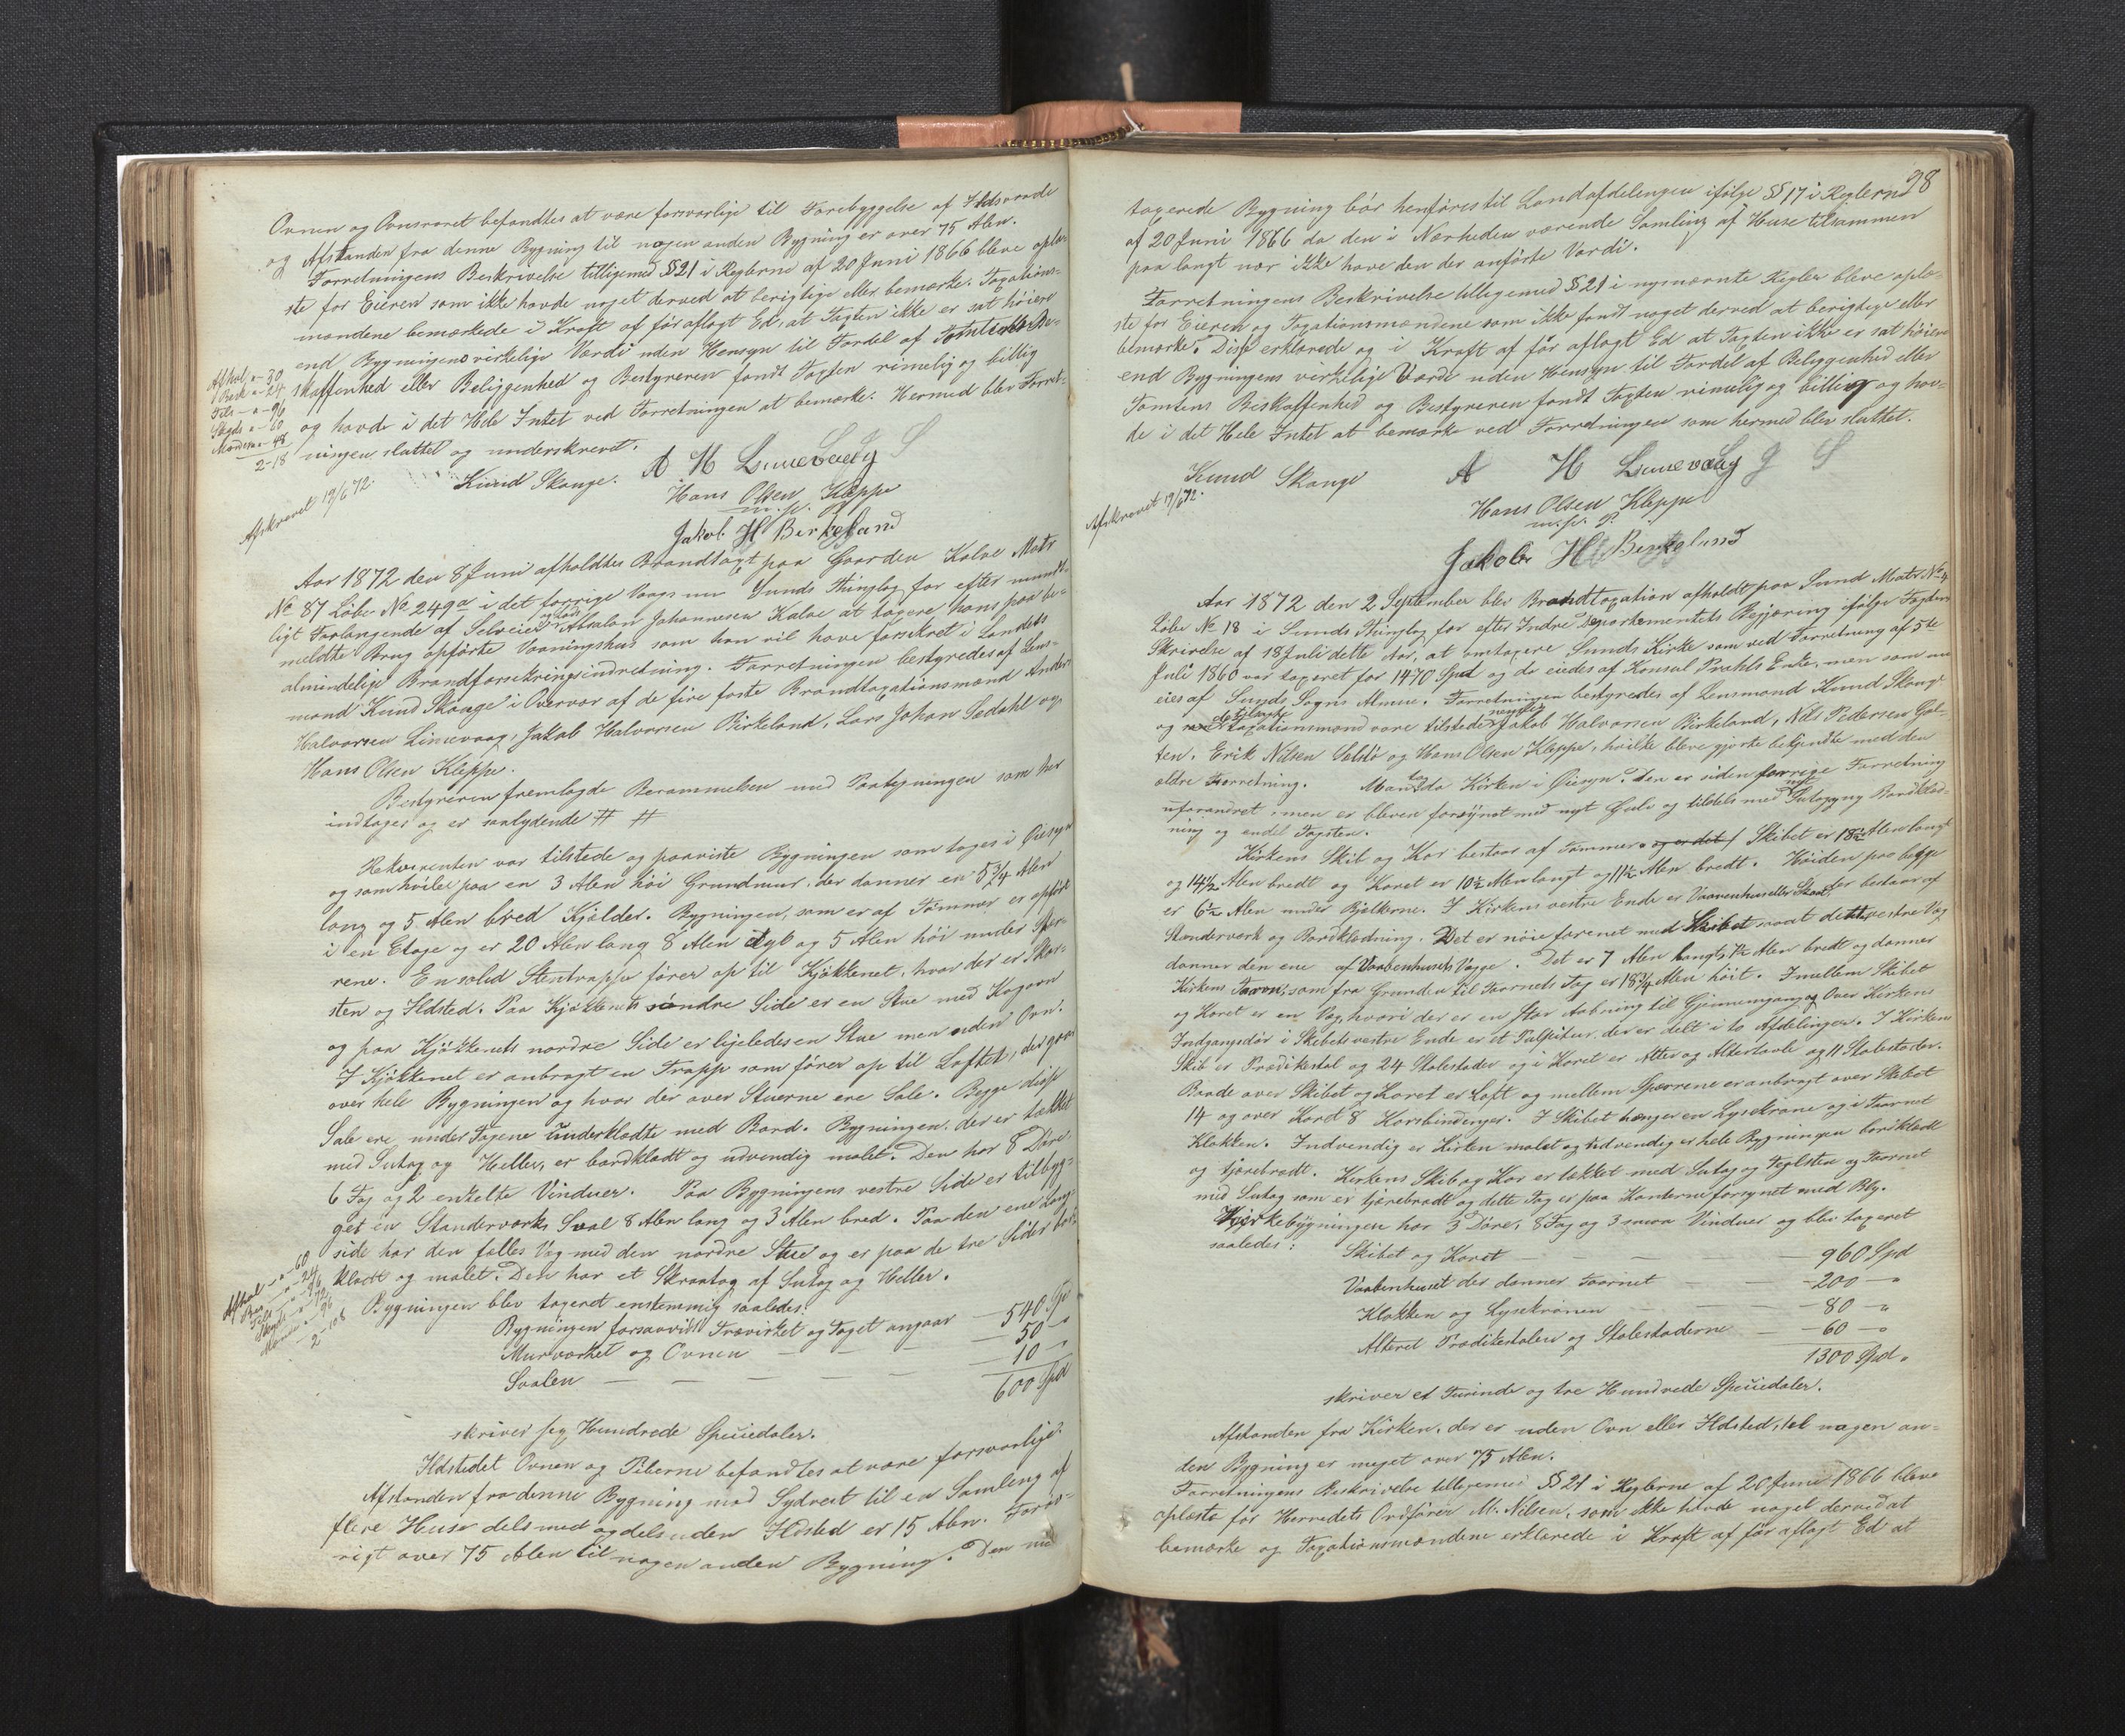 Ovnen og Ovnsroret befandtes at være forsvarlige til Forebyggelse af Ildsvaade
og Afstanden fra denne Bygning til nogen anden Bygning er over 75 Alen.
Forretningens Beskrivelse tilligemed § 21 i Reglerne af 20 Juni 1866 bleve oplæ-
ste for Eieren som ikke havde noget derved at berigtige eller bemærke. Taxations-
mændene bemærkede i Kraft af før aflagt Ed, at Taxten ikke er sat høiere
end Bygningens virkelige Værdi uden Hensyn til Fordel af Tomtens Be-
skaffenhed eller Beliggenhed og Bestyreren fandt Taxten rimelig og billig
og havde i det Hele Intet ved Forretningen at bemærke. Hermed blev Forret-
ningen sluttet og underskrevet.
Afhol " - 30
Besk " - 24
Fels - " - 96
Skyds " - 60
Mændene - 48
2 - 18
Knud Skauge. A H Linnevaag
Hans Olsen Kleppe
m. p. P.
Jakob H Birkeland
Afskrevet 19/6 72.
Aar 1872 den 8 Juni afholdtes Brandtaxt paa Gaarden Kalve Matr
No 87 Løbe No 249a i det forrige Vaags nu Sunds Thinglag for efter mundt-
ligt Forlangende af Selveier Absalon Johannesen Kalve at taxere hans paa be-
meldte Brug opførte Vaaningshus som han vil have forsikret i Landets
almindelige Brandforsikringsindretning. Forretningen bestyredes af Lens-
mand Knud Skauge i Overvær af de fire faste Brandtaxationsmænd Anders
Halvorsen Linnevaag, Jakob Halvorsen Birkeland, Lars Johan Sedahl og
Hans Olsen Kleppe.
Bestyreren fremlagde Berammelsen med Paategningen som her
indtages og er saalydende # #
Rekvirenten var tilstede og paaviste Bygningen som toges i Øiesyn
og som hviler paa en 3 Alen høi Grundmur, der danner en 5 3/4 Alen
lang og 5 Alen bred Kjelder. Bygningen, som er af Tømmer er opført
i en Etage og er 20 Alen lang 8 Alen dyb og 5 Alen høi under Spær-
rene. En solid Stentrappe fører op til Kjøkkenet, hvor der er Skor-
sten og Ildsted. Paa Kjøkkenets søndre Side er en Stue med Kogeovn
og paa Kjøkkenets nordre Side er ligeledes en Stue men uden Ovn.
I Kjøkkenet er anbragt en Trapp som fører op til Loftet, der gaar
over hele Bygningen og hvor der over Stuerne ere Sale. Begge disse
Sale ere under Tagene underklædte med Bord. Bygningen, der er tækket
med Sutag og Heller, er bordklædt og udvendig malet. Den har 8 Døre
6 Fag og 2 enkelte Vinduer. Paa Bygningens vestre Side er tilbyg-
get en Standerværks Sval 8 Alen lang og 3 Alen bred. Paa den ene Lang-
side har den fælles Væg med den nordre Stue og er paa de tre Sider bord-
klædt og malet. Den har et Skraatag af Sutag og Heller.
Bygningen blev taxeret enstemmig saaledes:
Bygningen forsaavidt Trævirket og Taget angaar — 540 Spd
Murværket og Ovnen — — — 50 — "
Svalen — — — — — 10 — "
600 Spd
skriver sex Hundrede Speciedaler.
Afhol - " - 60
Bes — " - 24
2 - 108
Ildstedet Ovnen og Piberne befandtes at være forsvarlige.
Afstanden fra denne Bygning mod Sydvest til en Samling af
flere Huse dels med og dels uden Ildsted er 15 Alen. Forøv-
rigt over 75 Alen til nogen anden Bygning. Den nu
98
taxerede Bygning bør henføres til Landafdelingen ifølge § 17 i Reglerne
af 20 Juni 1866 da den i Nærheden værende Samling af Huse tilsammen
paa langt nær ikke have den der anførte Værdi.
Forretningens Beskrivelse tilligemed § 21 i nysnævnte Regler bleve oplæ-
ste for Eieren og Taxationsmændene som ikke fandt noget derved at berigtige eller
bemærke. Disse erklærede og i Kraft af før aflagt Ed at Taxten ikke er sat høiere
end Bygningens virkelige Værdi uden Hensyn til Fordel af Beliggenhed eller
Tomtens Beskaffenhed og Bestyreren fandt Taxten rimelig og billig og hav-
de i det Hele Intet at bemærke ved Forretningen som hermed blev sluttet.
Knud Skauge A H Linnevaag
Afskrevet 19/6 72.
Hans Olsen Kleppe
m. p. P.
Jakob H Birkeland
Aar 1872 den 2 September blev Brandtaxation afholdt paa Sund Matr No 4
Løbe No 18 i Sunds Thinglag for efter Indre Departementets Begjæring ifølge
Skrivelse af 18 Juli dette Aar, at omtaxere Sunds Kirke som ved Forretning af 5te
Juli 1860 var taxeret for 1470 Spd og da eiedes af Konsul Prahls Enke, men som nu
eies af Sunds Sogns Almue. Forretningen bestyredes af Lensmand Knud Skauge
og Taxationsmænd vare tilstede Jakob Halvorsen Birkeland, Nils Pettersen Gol-
ten, Erik Nilsen Selstø og Hans Olsen Kleppe, hvilke bleve gjorte bekjendte med den
ældre Forretning. Man tog da Kirken i Øiesyn. Den er siden forrige Forretning
uforandret, men er bleven forsynet med nyt Gulv og tildels med nyt Sutag, ny Bordklæd-
ning og endel Tagsten.
Kirkens Skib og Kor bestaar af Tømmer. Skibet er 18 1/2 Alen langt
og 14 1/2 Alen bredt og Koret er 10 1/2 Alen langt og 11 1/2 Alen bredt. Høiden paa begge
er 6 1/2 Alen under Bjelkerne. I Kirkens vestre Ende er Vaabenhus eller Skot, der bestaar af
Standerværk og Bordklædning. Det er nøie forenet med Skibet saaat dettes vestre Væg
danner den ene af Vaabenhusets Vægge. Det er 7 Alen langt, Alen bredt og danner
Kirkens Taarn, som fra Grunden til Taarnets Tag er 18 3/4 Alen høit. Imellem Skibet
og Koret er en Væg, hvori der er en stor Aabning til Gjennemgang og over Kirkens
Indgangsdør i Skibets vestre Ende er et Pulpitur, der er delt i to Afdelinger. I Kirkens
Skib er Prædikestol og 24 Stolestader og i Koret er Alter og Altertavle og 11 Stolestader.
Baade over Skibet og Koret er Loft og mellem Spærrene er anbragt over Skibet
14 og over Koret 8 Korsbindinger. I Skibet hænger en Lysekrone og i Taarnet
Klokken. Indvendig er Kirken malet og udvendig er hele Bygningen bordklædt
og tjærebrædt. Kirkens Skib og Kor er tækket med Sutag og Teglsten og Taarnet
med Sutag som er tjærebrædt og dette Tag er paa Kanterne forsynet med Bly.
Kirkebygningen har 3 Døre, 8 Fag og 3 smaa Vinduer og blev taxeret
saaledes: Skibet og Koret — — — 960 Spd
Vaabenhuset der danner Taarnet — — 200 — "
Klokken og Lysekronen — — — 80 — "
Alteret Prædikestolen og Stolestaderne — 60 — "
1300 Spd.
skriver et Tusinde og tre Hundrede Speciedaler.
Afstanden fra Kirken, der er uden Ovn eller Ildsted, til nogen an-
den Bygning er meget over 75 Alen.
Forretningens Beskrivelse tilligemed § 21 i Reglerne af 20 Juni 1866 bleve
oplæste for Herredets Ordfører M. Nilsen, som ikke havde noget derved at
bemærke og Taxationsmændene erklærede i Kraft af før aflagt Ed at